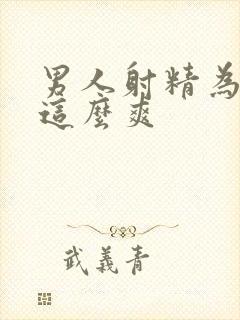 男人射精為
這麼爽
武義青